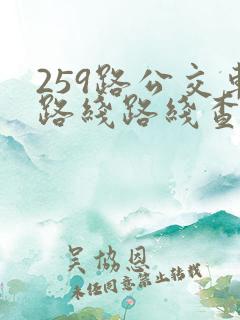 259路公交车
路线路线查
吴协恩
未经同意禁止转载